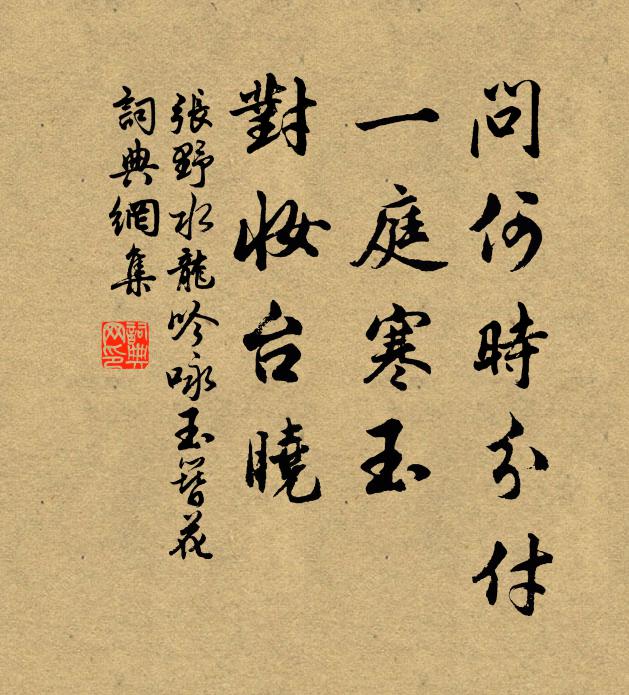 問何時分付
一庭寒玉
對妝台曉
張野水龍吟咏玉簪花
詞典網集
詞典网印